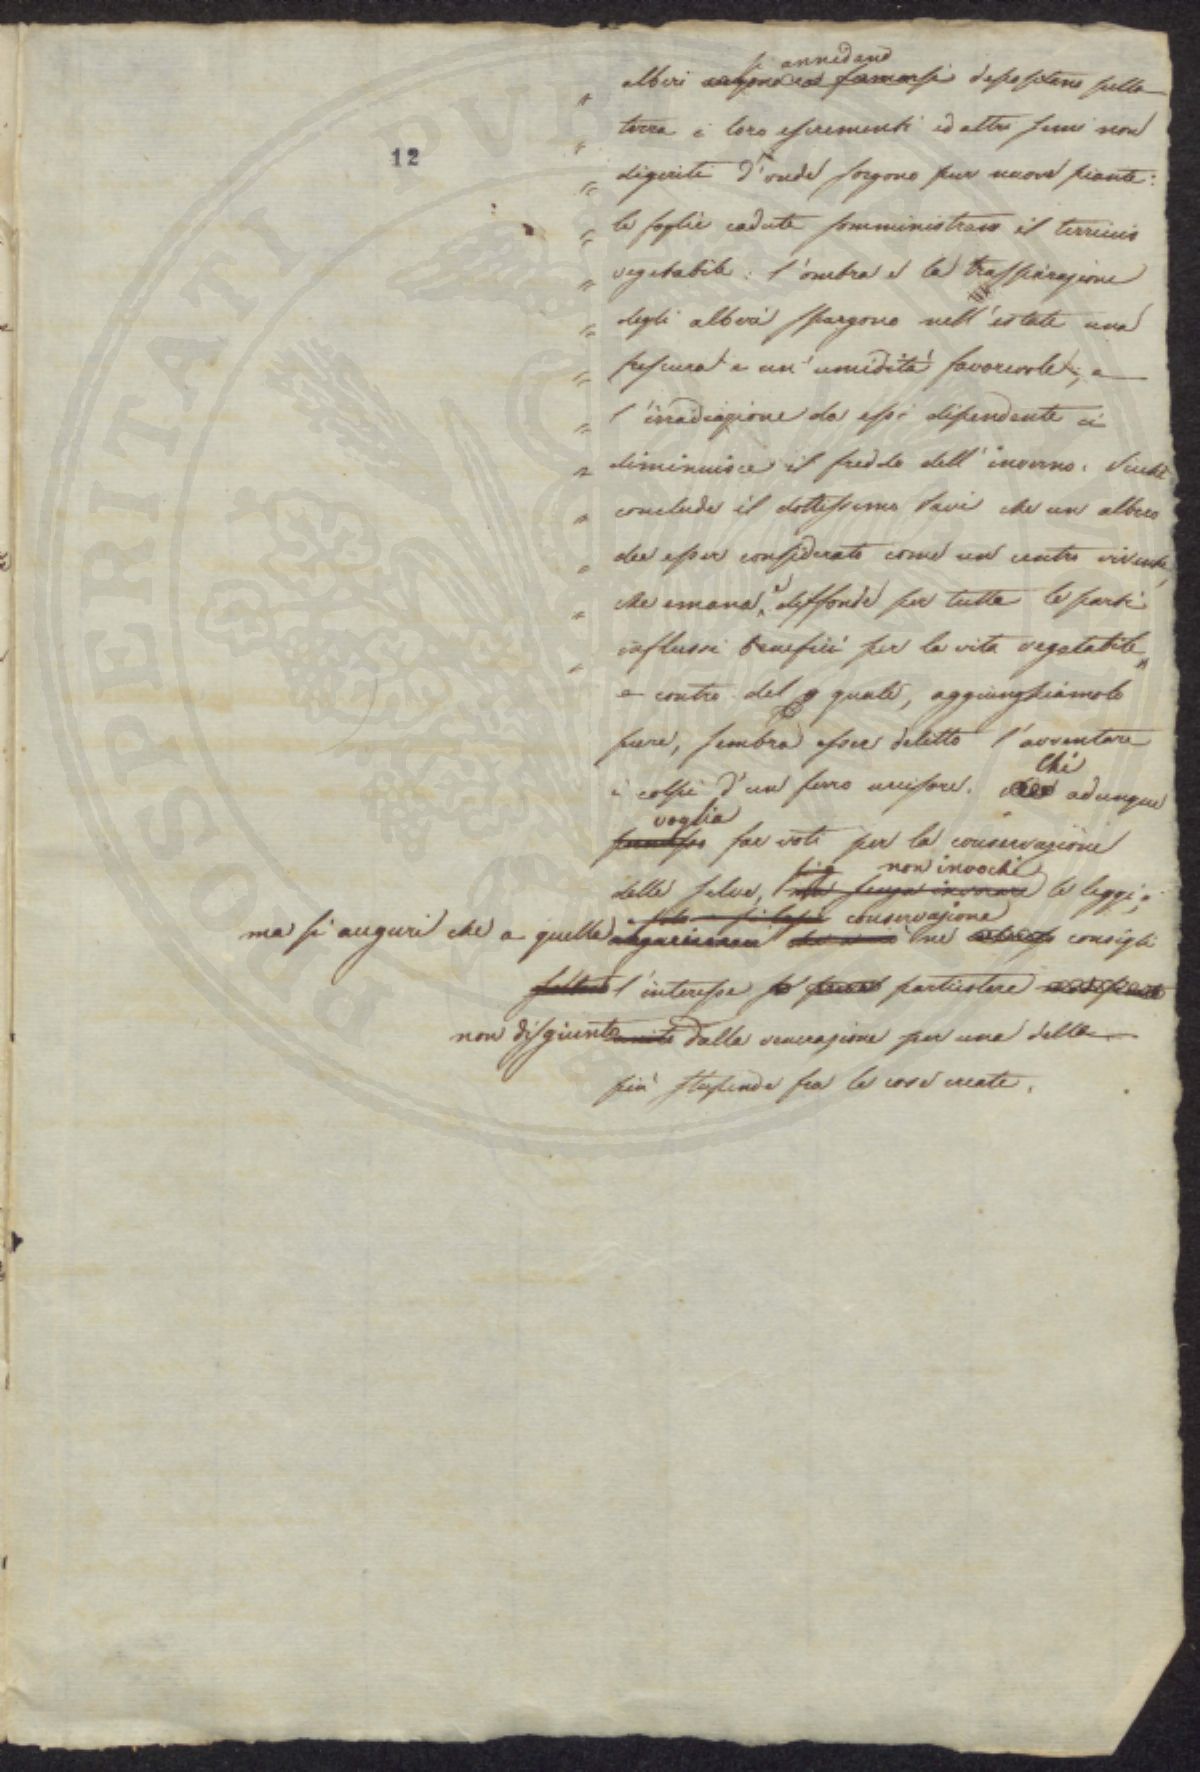 12
si annidano
" alberi depositano sulla
" terra i loro escrementi ed altri semi non
" digerite d'onde sorgono pur nuove piante:
" le foglie cadute somministrano il terriccio
" vegetabile: l'ombra e la traspirazione
" degli alberi spargono nell'estate una
" frescura e un'umidità favorevole, e
" l'irradiazione da essi dipendente ci
" diminuisce il freddo dell'inverno.
" conclude il dottissimo Savi che un albero
" dee esser considerato come un centro vivente,
" che emana, e diffonde per tutte le parti
" influssi benefici per la vita vegetabile"
e contro del quale, aggiunghiamolo
pure, sembra esser delitto l'avventare
i colpi d'un ferro uccisore. Chi adunque
voglia far voti per la conservazione
delle selve, non invochi le leggi;
ma si auguri che a quella conservazione ne consigli
l'interesse particolare
non disgiunto dalla venerazione per una delle
più stupende fra le cose create.
PVBLICAE PROSPERITATI